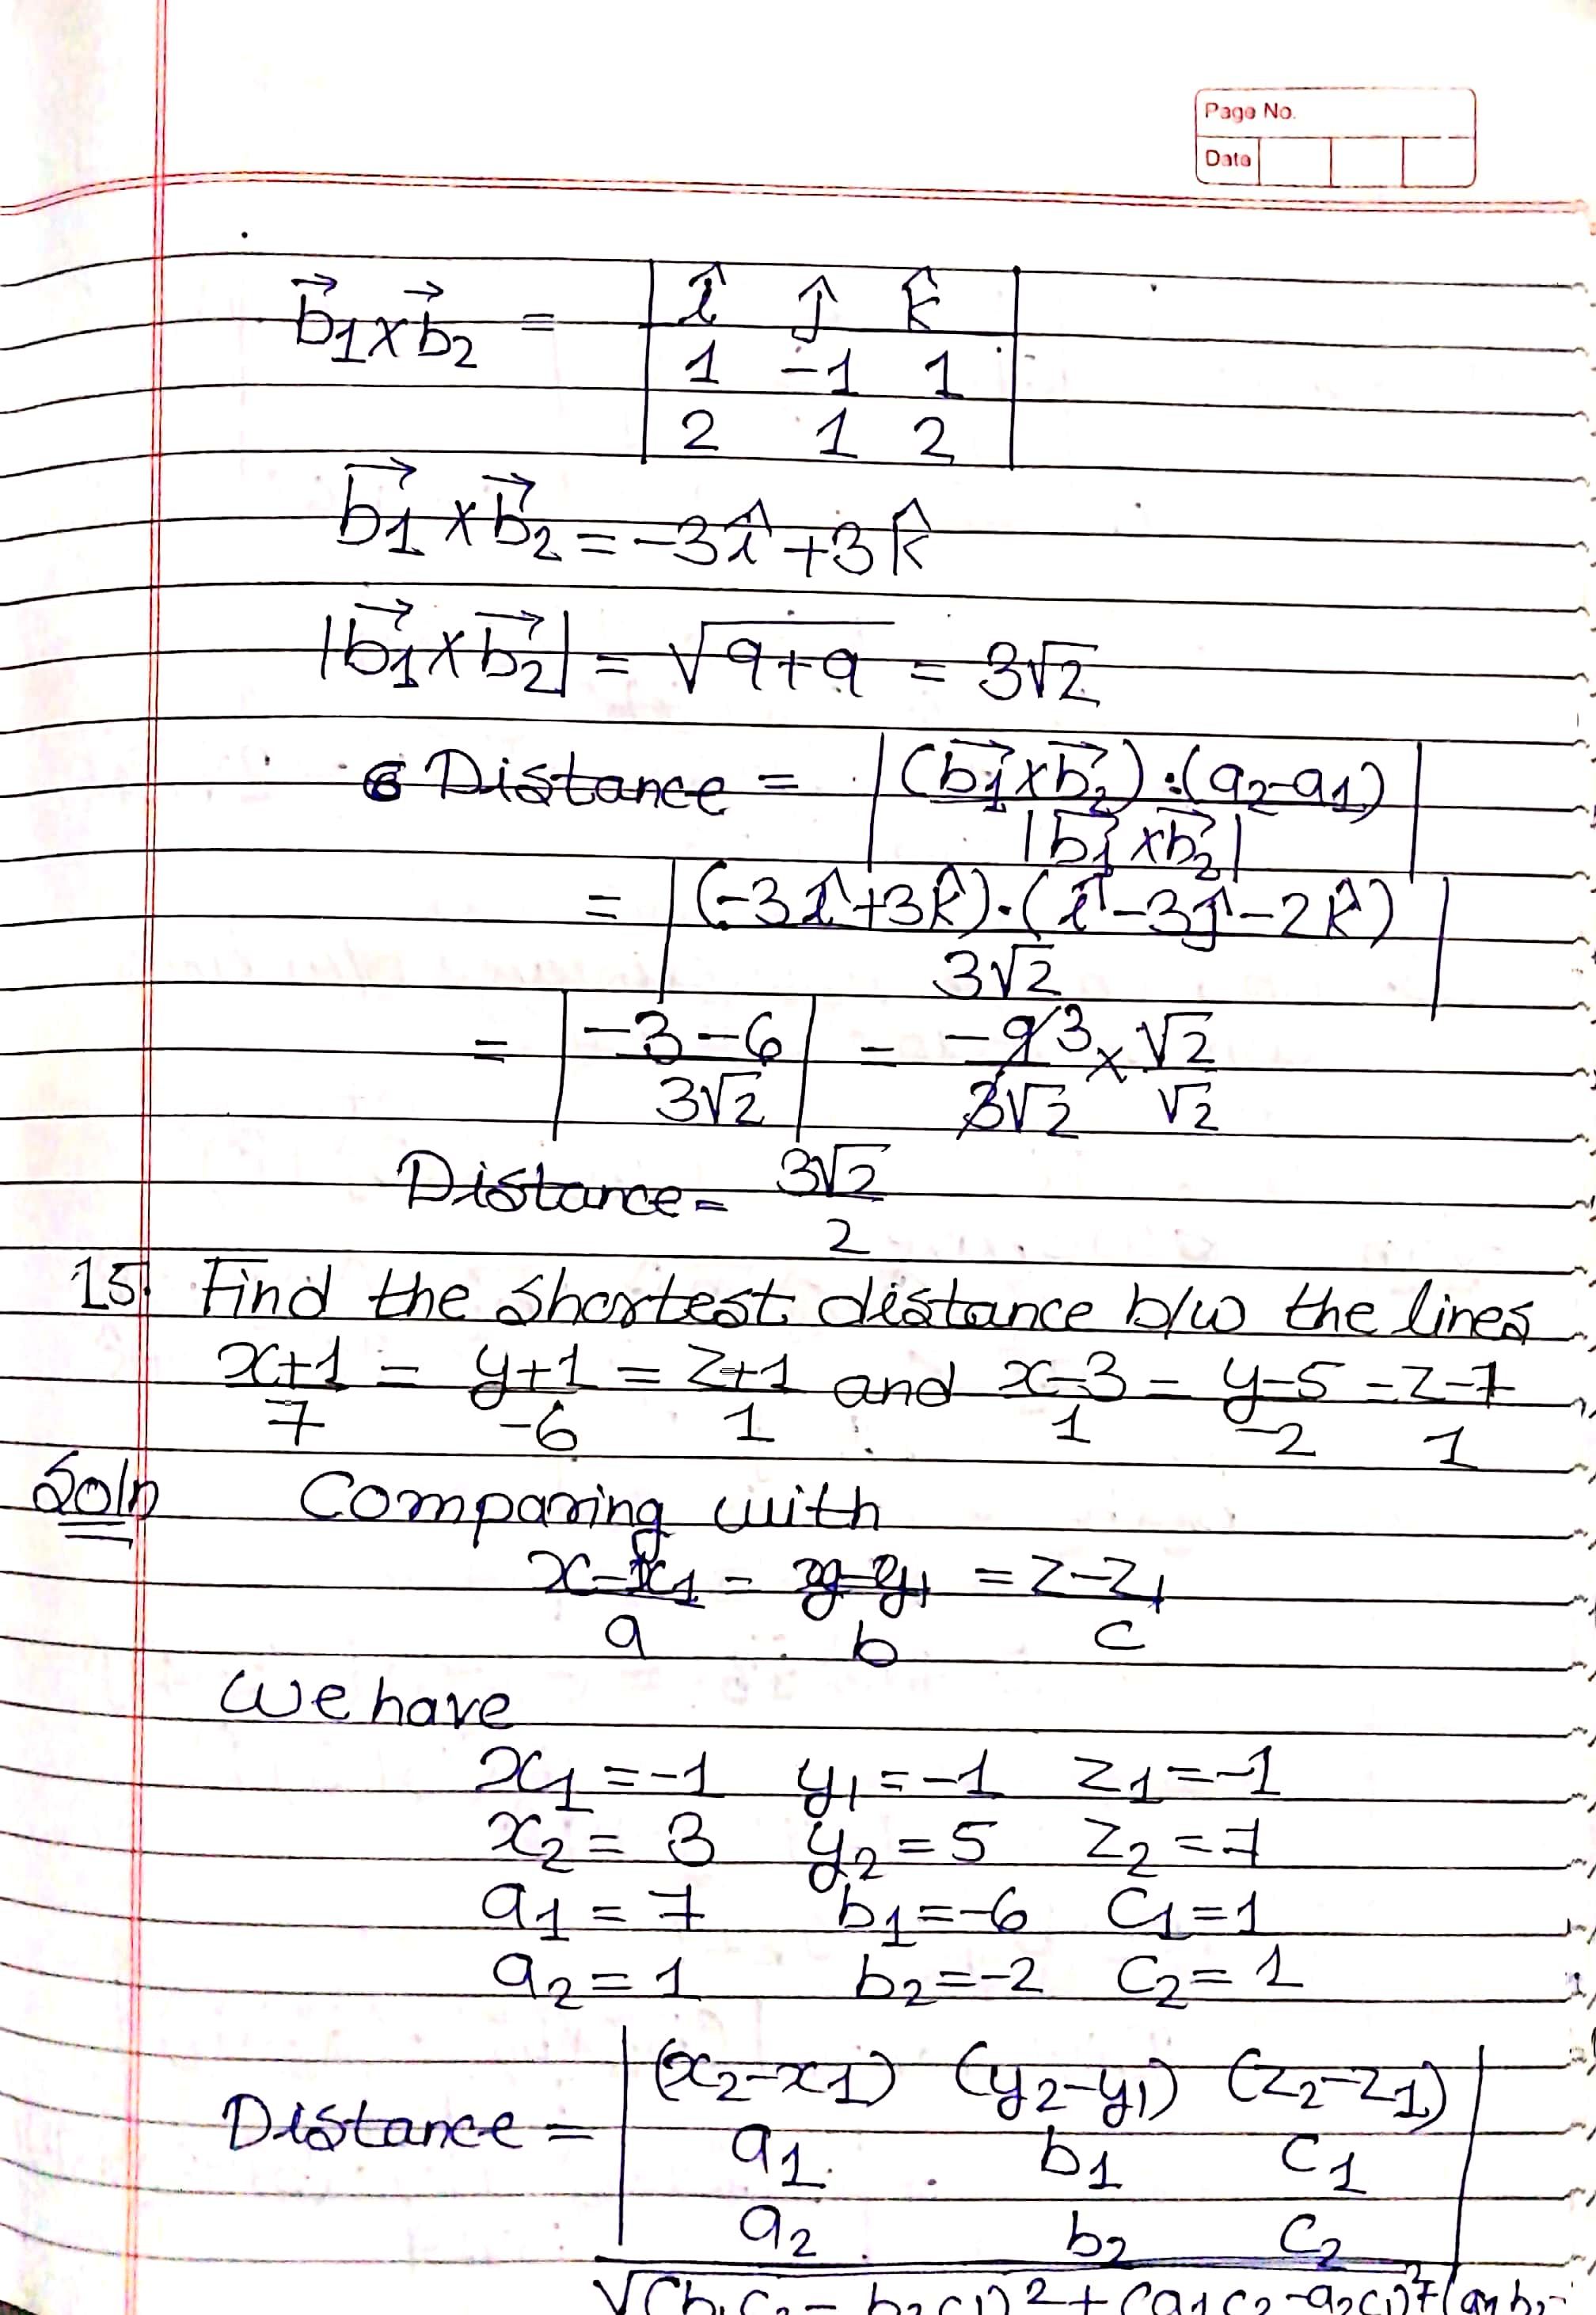 Page No.
Date
b⃗1×b⃗2 = | î ĵ k̂ |
| 1 -1 1 |
| 2 1 2 |
b⃗1×b⃗2 = -3î+3k̂
|b⃗1×b⃗2| = √9+9 = 3√2
Distance = | (b⃗1×b⃗2).(a2-a1) / |b⃗1×b⃗2| |
= | (-3î+3k̂).(î-3ĵ-2k̂) / 3√2 |
= | -3-6 / 3√2 | = -9 3 / 3√2 × √2 / √2
Distance = 3√2 / 2
15. Find the shortest distance b/w the lines
x+1 / 7 = y+1 / -6 = z+1 / 1 and x-3 / 1 = y-5 / -2 = z-7 / 1
Soln Comparing with
x-x1 / a = y-y1 / b = z-z1 / c
We have
x1=-1 y1=-1 z1=-1
x2=3 y2=5 z2=7
a1=7 b1=-6 c1=1
a2=1 b2=-2 c2=1
Distance = | (x2-x1) (y2-y1) (z2-z1) |
| a1 b1 c1 |
| a2 b2 c2 |
√(b1c2-b2c1)2+(a1c2-a2c1)2+(a1b2-